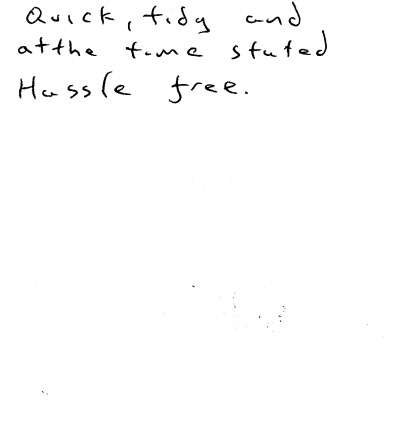 Quick, tidy and
at the time stated
Hassle free.